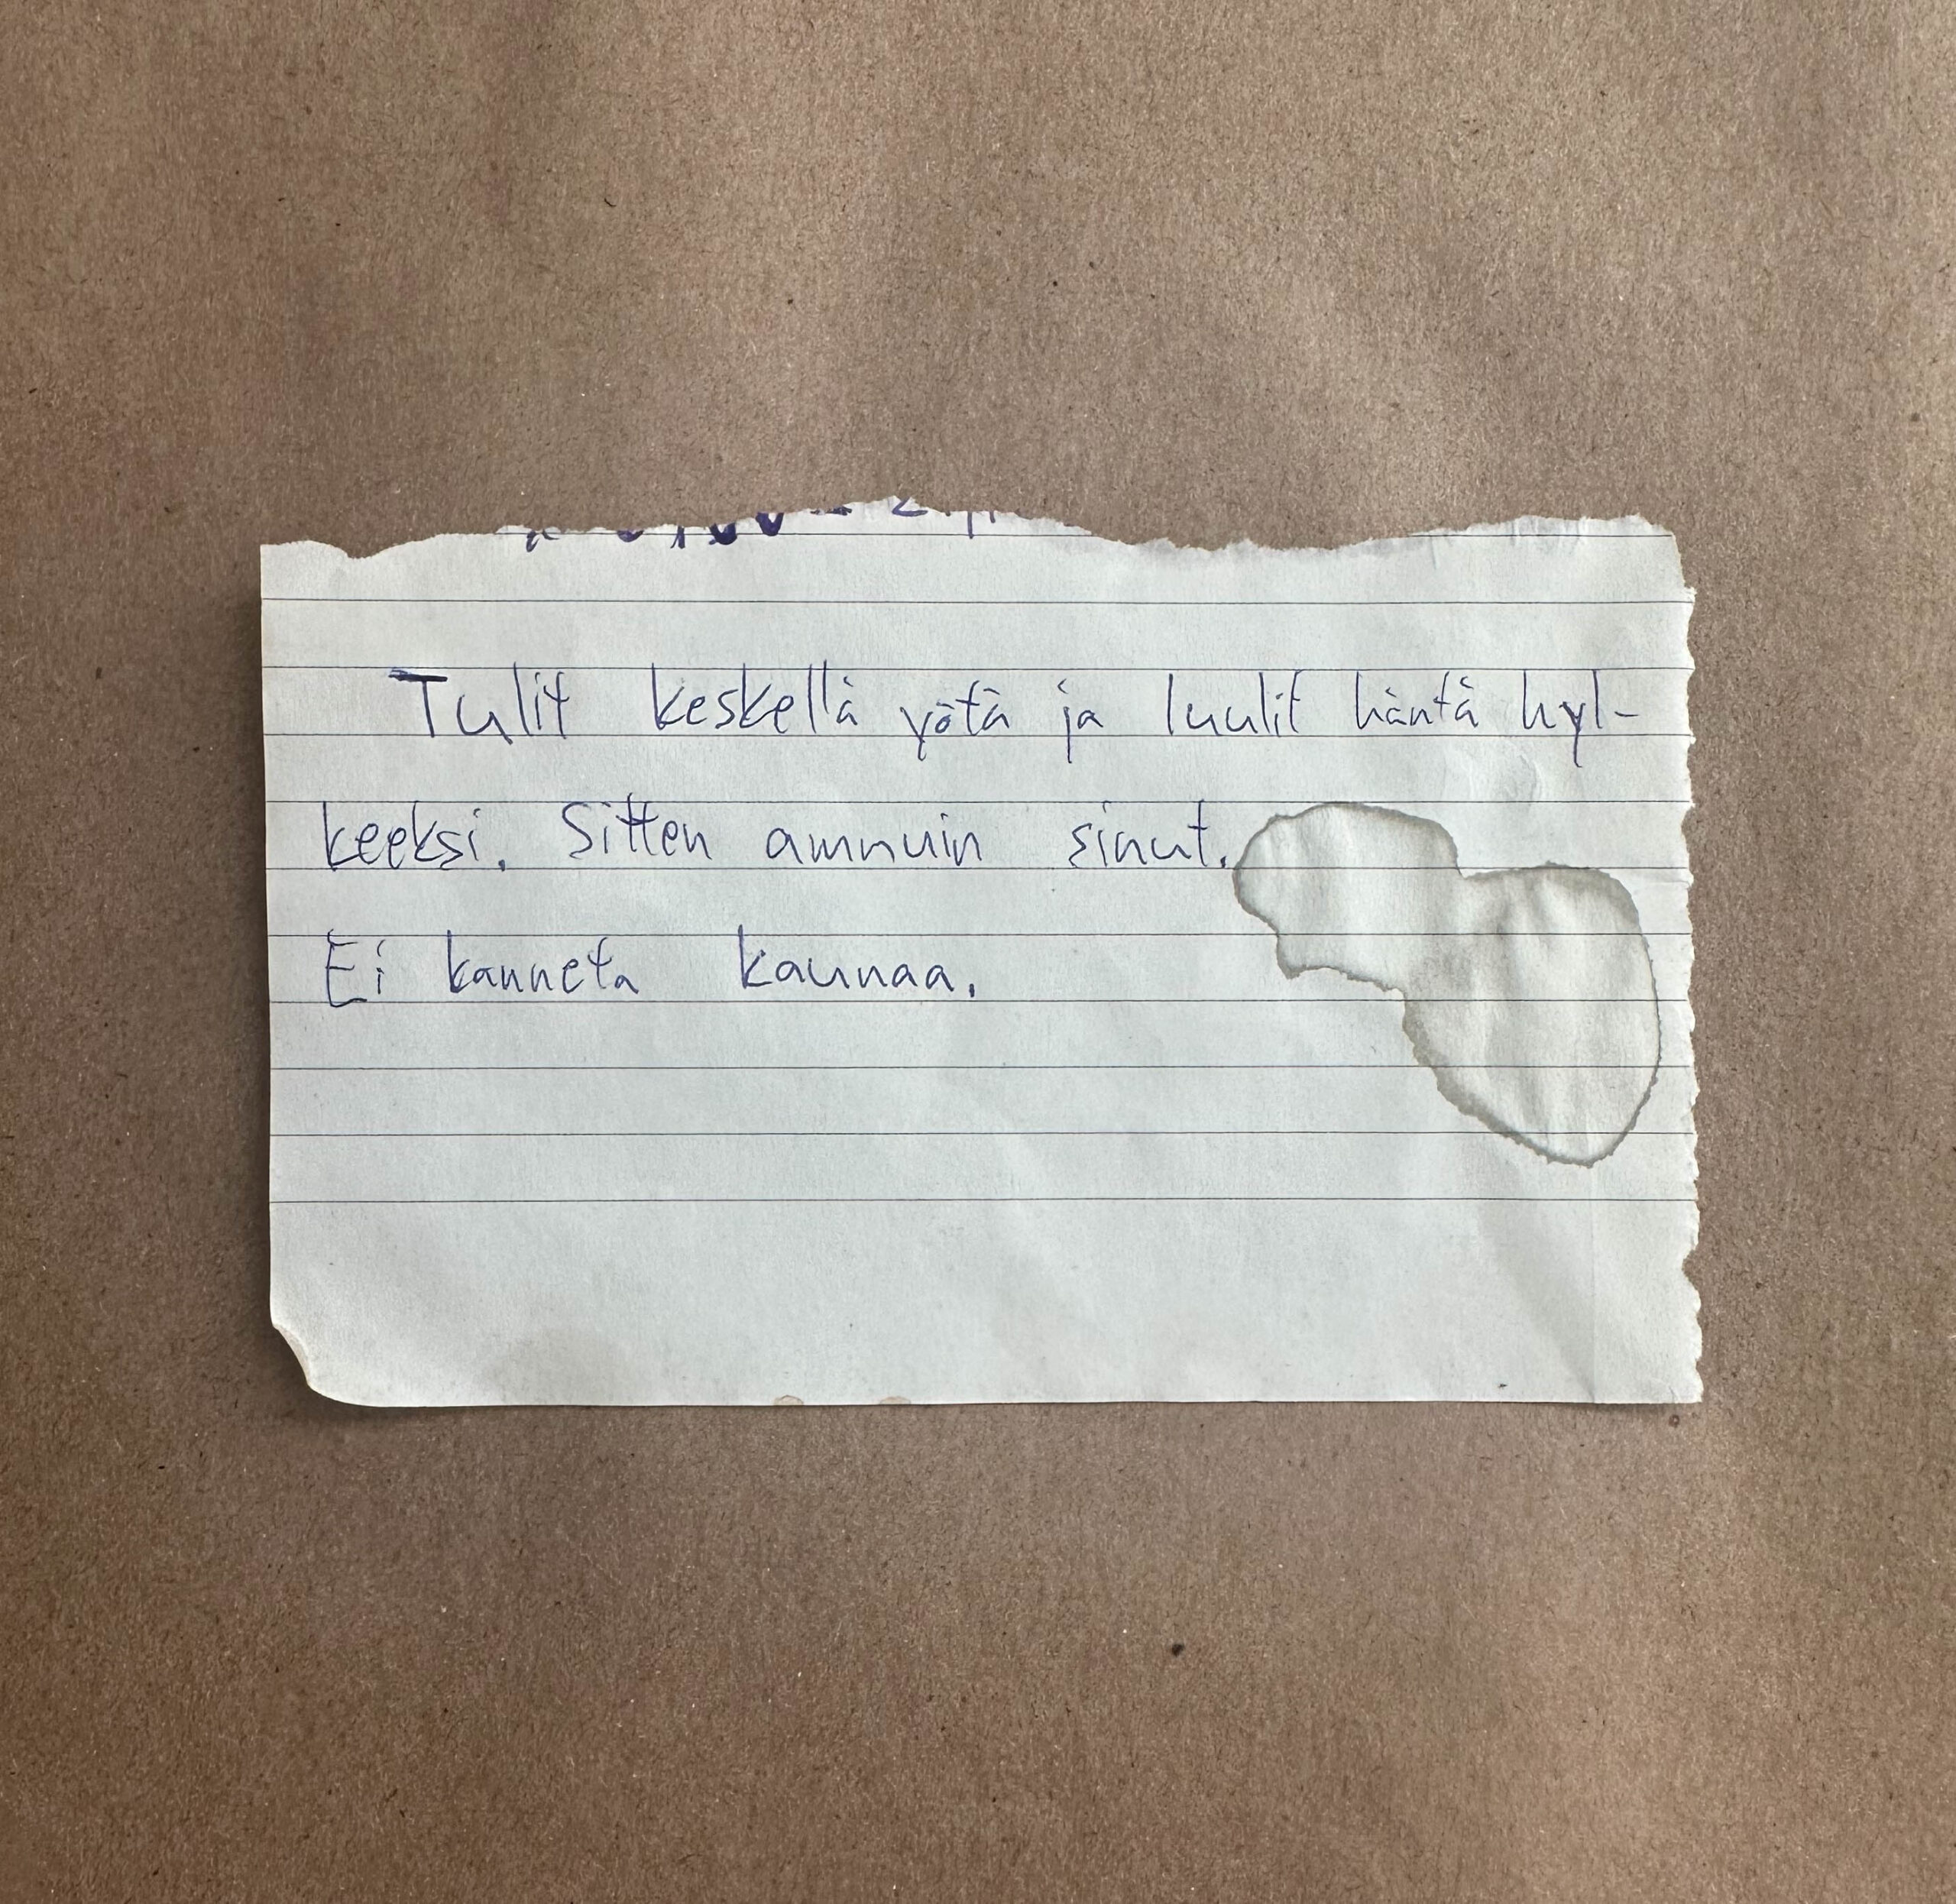 Tulit keskellä yötä ja luulit häntä hyl-
keeksi. Sitten ammuin sinut.
Ei kanneta kaunaa.